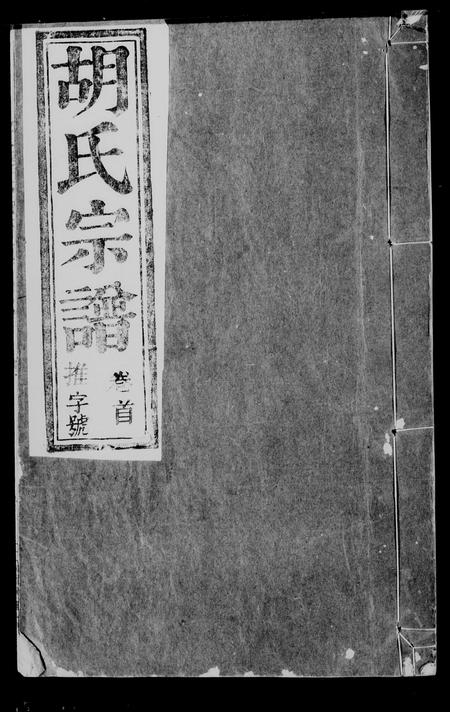 胡氏宗譜
卷首
推字號